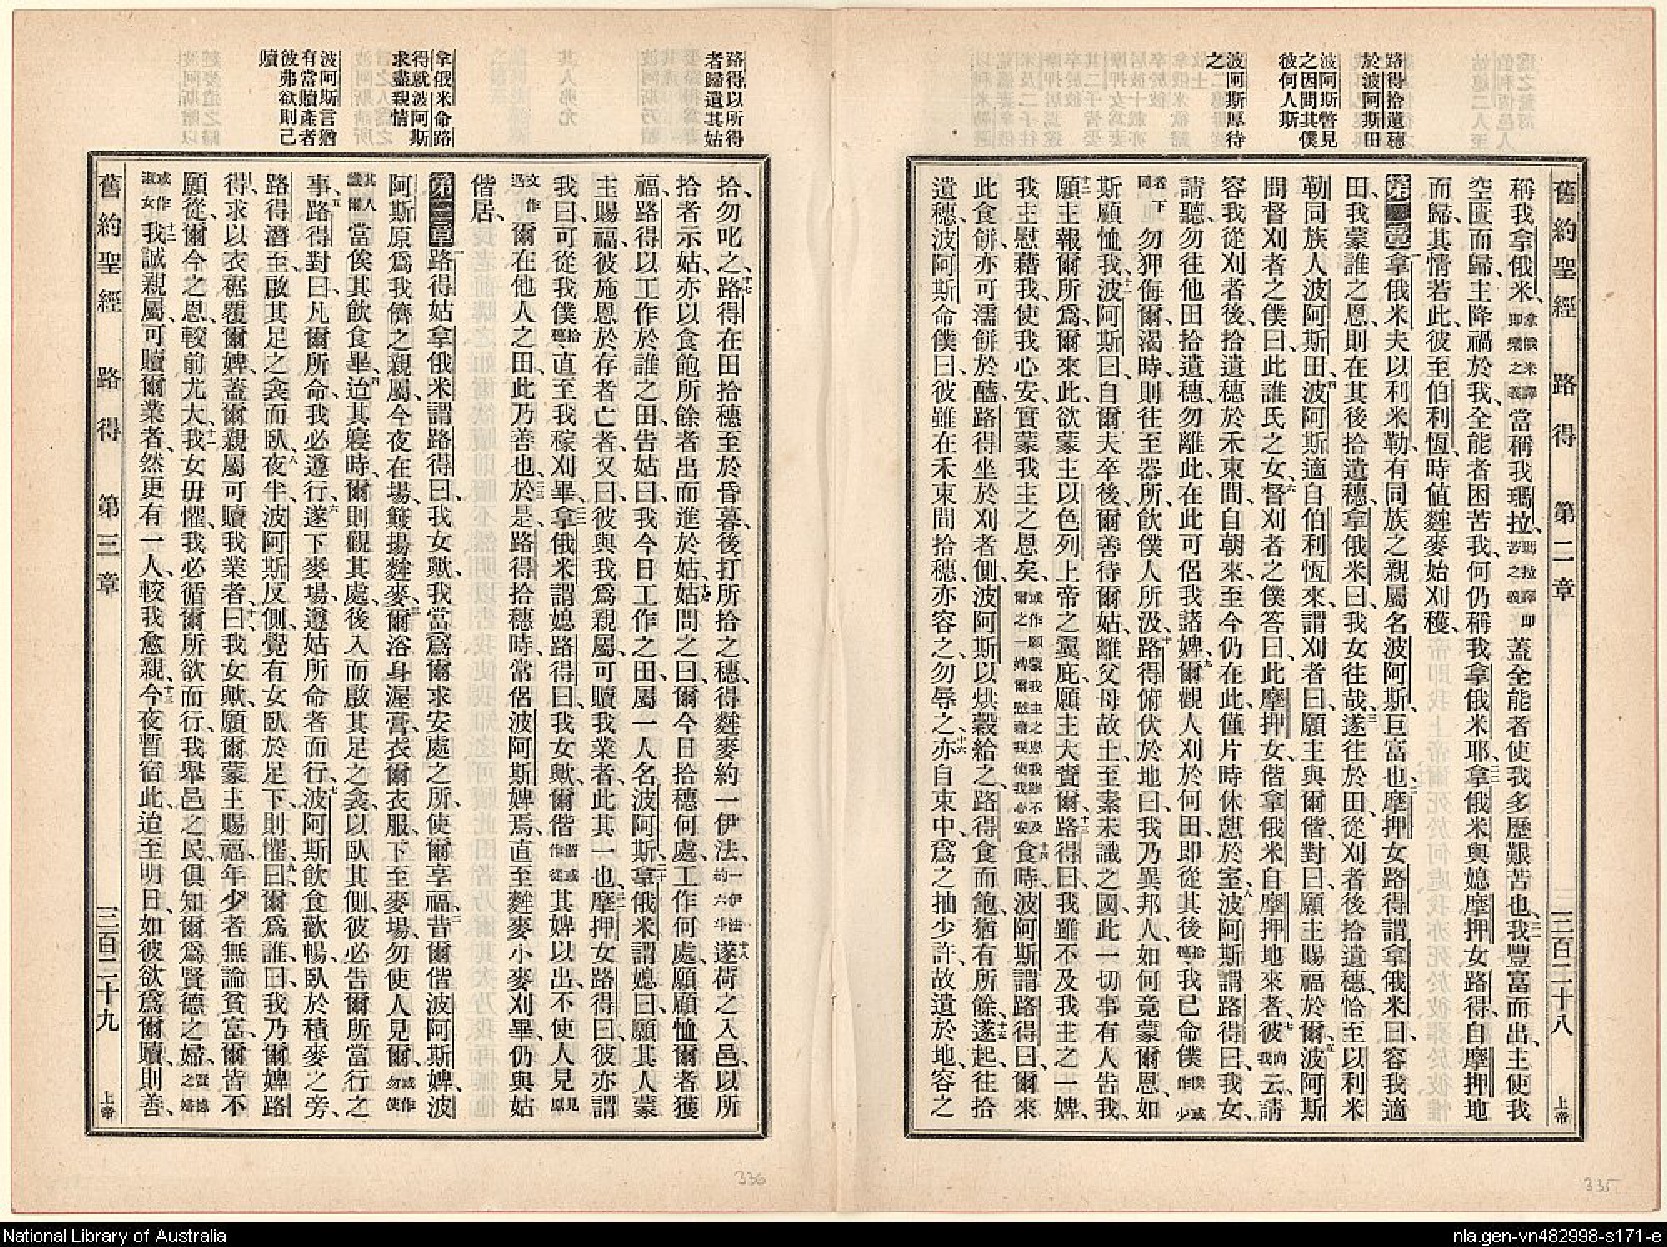 舊約聖經 路得 第二章 三百二十八 上帝
路得拾遺穗
於波阿斯田
波阿斯瞥見
之因問其僕
彼何人斯
波阿斯厚待
之
稱我拿俄米、拿俄米譯即樂之義當稱我瑪拉、瑪拉譯即苦之義蓋全能者使我多歷艱苦也、我豐富而出、主使我
空匱而歸、主降禍於我、全能者困苦我、何仍稱我拿俄米耶、拿俄米與媳摩押女路得、自摩押地
而歸、其情若此、彼至伯利恆、時值麰麥始刈穫、
第二章 拿俄米夫以利米勒、有同族之親屬名波阿斯、巨富也、摩押女路得謂拿俄米曰、容我適
田、我蒙誰之恩、則在其後拾遺穗、拿俄米曰、我女往哉、遂往於田、從刈者後拾遺穗、恰至以利米
勒同族人波阿斯田、波阿斯適自伯利恆來、謂刈者曰、願主與爾偕、對曰、願主賜福於爾、波阿斯
問督刈者之僕曰、此誰氏之女、督刈者之僕答曰、此摩押女、偕拿俄米自摩押地來者、彼向我云、請
容我從刈者後、拾遺穗於禾束間、自朝來至今仍在此、僅片時休憩於室、波阿斯謂路得曰、我女、
請聽、勿往他田拾遺穗、勿離此、在此可侶我諸婢、爾觀人刈於何田、即從其後、我已命僕
勿狎侮爾、渴時則往至器所、飲僕人所汲、路得俯伏於地曰、我乃異邦人、如何竟蒙爾恩、如
斯顧恤我、波阿斯曰、自爾夫卒後、爾善待爾姑、離父母故土、至素未識之國、此一切事有人告我、
願主報爾所爲、爾來此、欲蒙主以色列上帝之翼庇、願主大賚爾、路得曰、我雖不及我主之一婢、
我主慰藉我、使我心安、實蒙我主之恩矣、或作願蒙我主之恩我雖不及爾之一婢爾慰藉我使我心安食時、波阿斯謂路得曰、爾來
此食餅、亦可濡餅於醯、路得坐於刈者側、波阿斯以烘穀給之、路得食而飽、猶有所餘、遂起、往拾
遺穗、波阿斯命僕曰、彼雖在禾束間拾穗、亦容之、勿辱之、亦自束中、爲之抽少許、故遺於地、容之
335
路得以所得
者歸遺其姑
拿俄米命路
得就波阿斯
求盡親情
波阿斯言猶
有當贖產者
彼弗欲則己
贖
拾、勿叱之、路得在田拾穗、至於昏暮、後打所拾之穗、得麰麥約一伊法、一伊法約六斗遂荷之入邑、以所
拾者示姑、亦以食飽所餘者出而進於姑、姑問之曰、爾今日拾穗何處、工作何處、願顧恤爾者獲
福、路得以工作於誰之田告姑曰、我今日工作之田、屬一人名波阿斯、拿俄米謂媳曰、願其人蒙
主賜福、彼施恩於存者亡者、又曰、彼與我爲親屬、可贖我業者、此其一也、摩押女路得曰、彼亦謂
我曰、可從我僕直至我稼刈畢、拿俄米謂媳路得曰、我女歟、爾偕或作從其婢以出、不使人見
爾在他人之田、此乃善也、於是路得拾穗時、常侶波阿斯婢焉、直至麰麥小麥刈畢、仍與姑
偕居、
第三章 路得姑拿俄米謂路得曰、我女歟、我當爲爾求安處之所、使爾享福、昔爾偕波阿斯婢、波
阿斯原爲我儕之親屬、今夜在場簸揚麰麥、爾浴身渥膏、衣爾衣服、下至麥場、勿使人見爾、或作勿使
其人識爾當俟其飲食畢、迨其寢時、爾則觀其處、後入而啟其足之衾、以臥其側、彼必告爾所當行之
事、路得對曰、凡爾所命、我必遵行、遂下麥場、遵姑所命者而行、波阿斯飲食歡暢、臥於積麥之旁、
路得潛至、啟其足之衾而臥、夜半波阿斯反側、覺有女臥於足下、則懼、曰、爾爲誰、曰、我乃爾婢路
得、求以衣裾覆爾婢、蓋爾親屬可贖我業者、曰、我女歟、願爾蒙主賜福、年少者無論貧富、爾皆不
願從、爾今之恩、較前尤大、我女毋懼、我必循爾所欲而行、我舉邑之民、俱知爾爲賢德之婦、
或作淑女我誠親屬、可贖爾業者、然更有一人、較我愈親、今夜暫宿此、迨至明日、如彼欲爲爾贖則善、
舊約聖經 路得 第三章 三百二十九 上帝
336
National Library of Australia
nla.gen-vn482998-s171-e